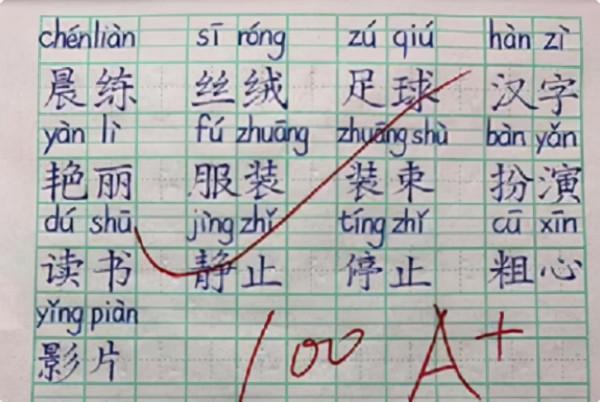 chénliàn sī róng zú qiú hàn zì
晨练 丝绒 足球 汉字
yàn lì fú zhuāng zhuāng shù bàn yǎn
艳丽 服装 装束 扮演
dú shū jìng zhǐ tíng zhǐ cū xīn
读书 静止 停止 粗心
yǐng piàn
影片
100 A+